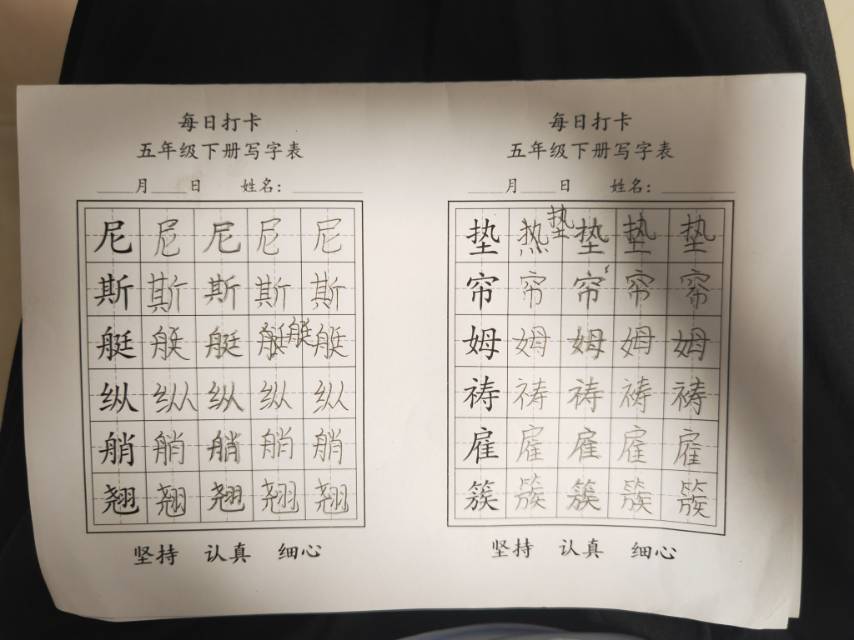 每日打卡
五年级下册写字表
____月____日 姓名：________
尼 尼 尼 尼 尼
斯 斯 斯 斯 斯
艇 艇 艇 艇 艇 艇
纵 纵 纵 纵 纵
艄 艄 艄 艄 艄
翘 翘 翘 翘 翘
坚持 认真 细心
每日打卡
五年级下册写字表
____月____日 姓名：________
垫 热 垫 垫 垫 垫
帘 帘 帘 帘 帘
姆 姆 姆 姆 姆
祷 祷 祷 祷 祷
雇 雇 雇 雇 雇
簇 簇 簇 簇 簇
坚持 认真 细心